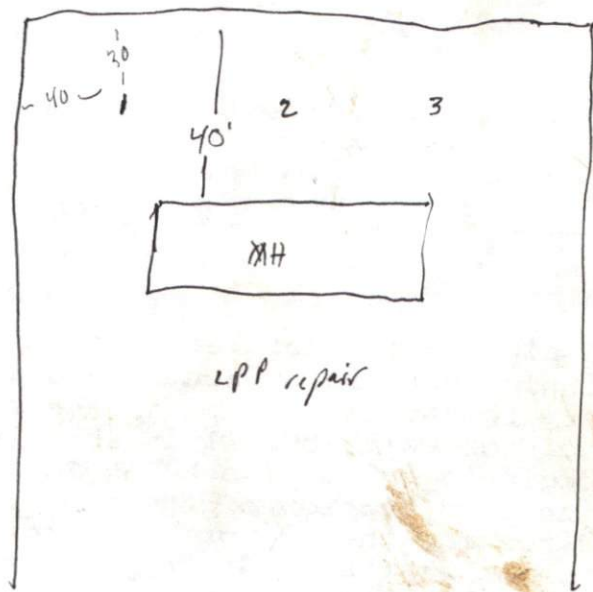 30
40
2 3
40'
MH
LPP repair